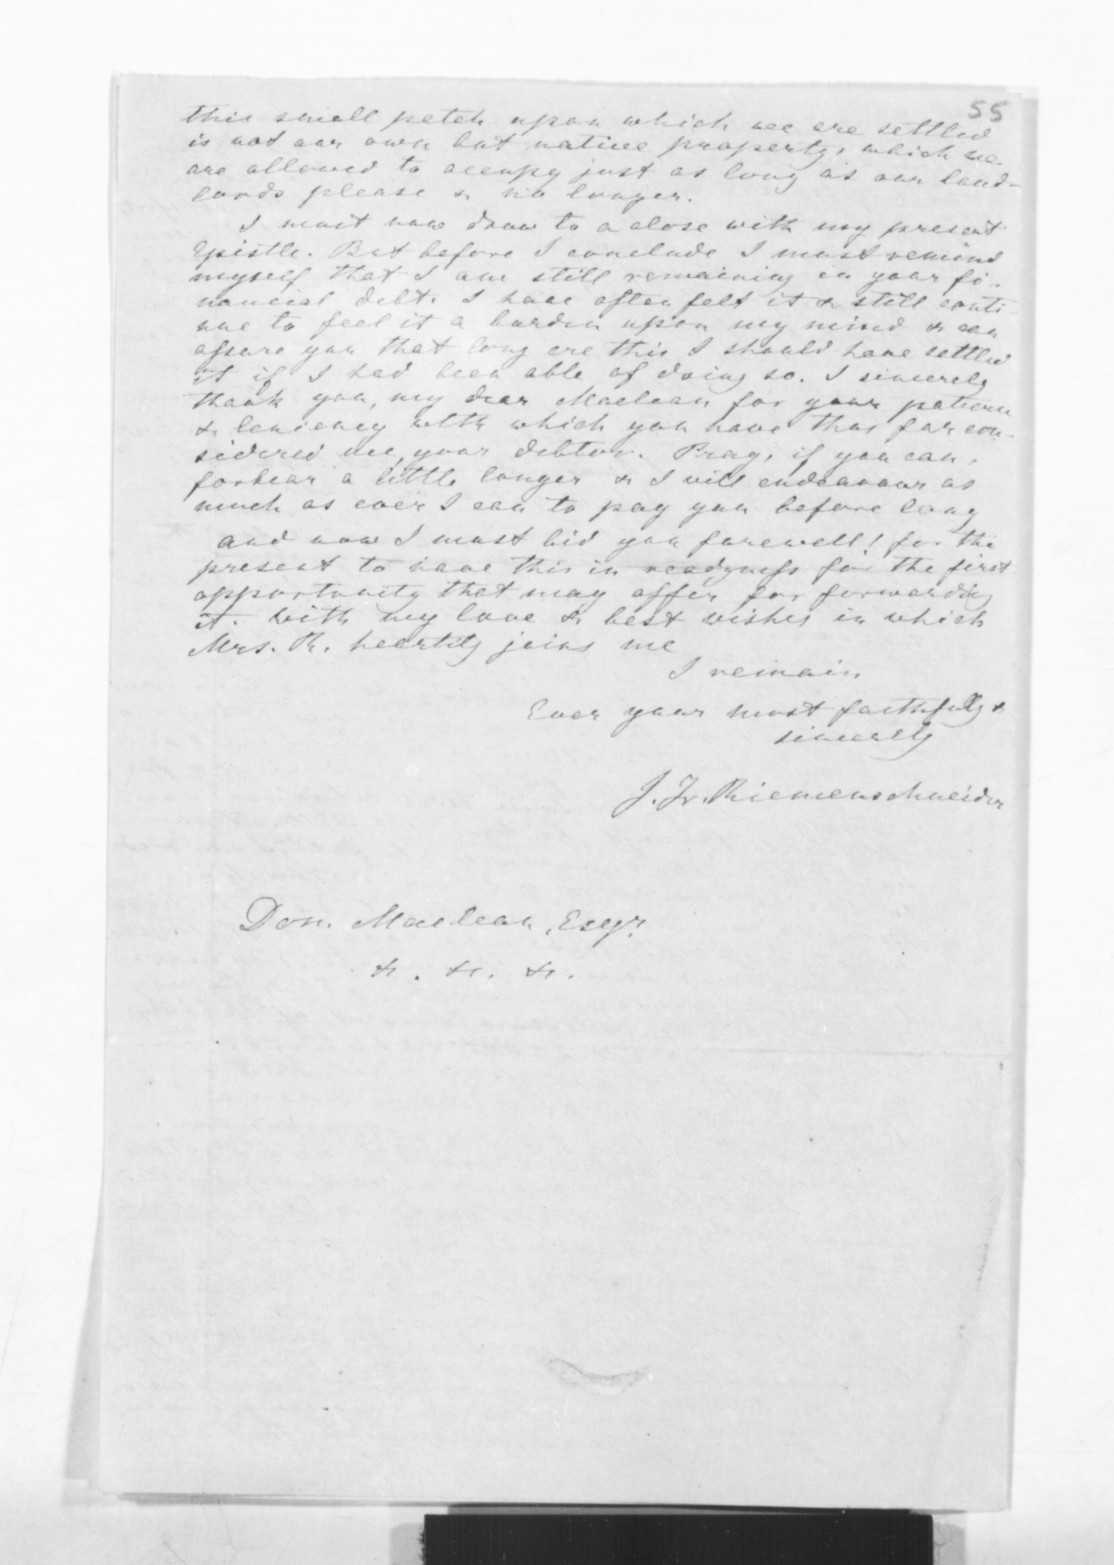 55
this small patch upon which we are settled
is not our own but native property, which we
are allowed to occupy just as long as our land-
lords please & no longer.
I must now draw to a close with my present
Epistle. But before I conclude I must remind
myself that I am still remaining in your fi-
nancial debt. I have often felt it & still conti-
nue to feel it a burden upon my mind & can
assure you that long ere this I should have settled
it if I had been able of doing so. I sincerely
thank you, my dear Maclean for your patience
& leniency with which you have thus far con-
sidered me, your debtor. Pray, if you can,
forbear a little longer & I will endeavour as
much as ever I can to pay you before long
And now I must bid you farewell! for the
present to have this in readyness for the first
opportunity that may offer for forwarding
it. With my love & best wishes in which
Mrs. R. heartily joins me
I remain
Ever your most faithfully &
sincerely
J. Fr. Riemenschneider
Don. Maclean, Esqr.
&. &. &.